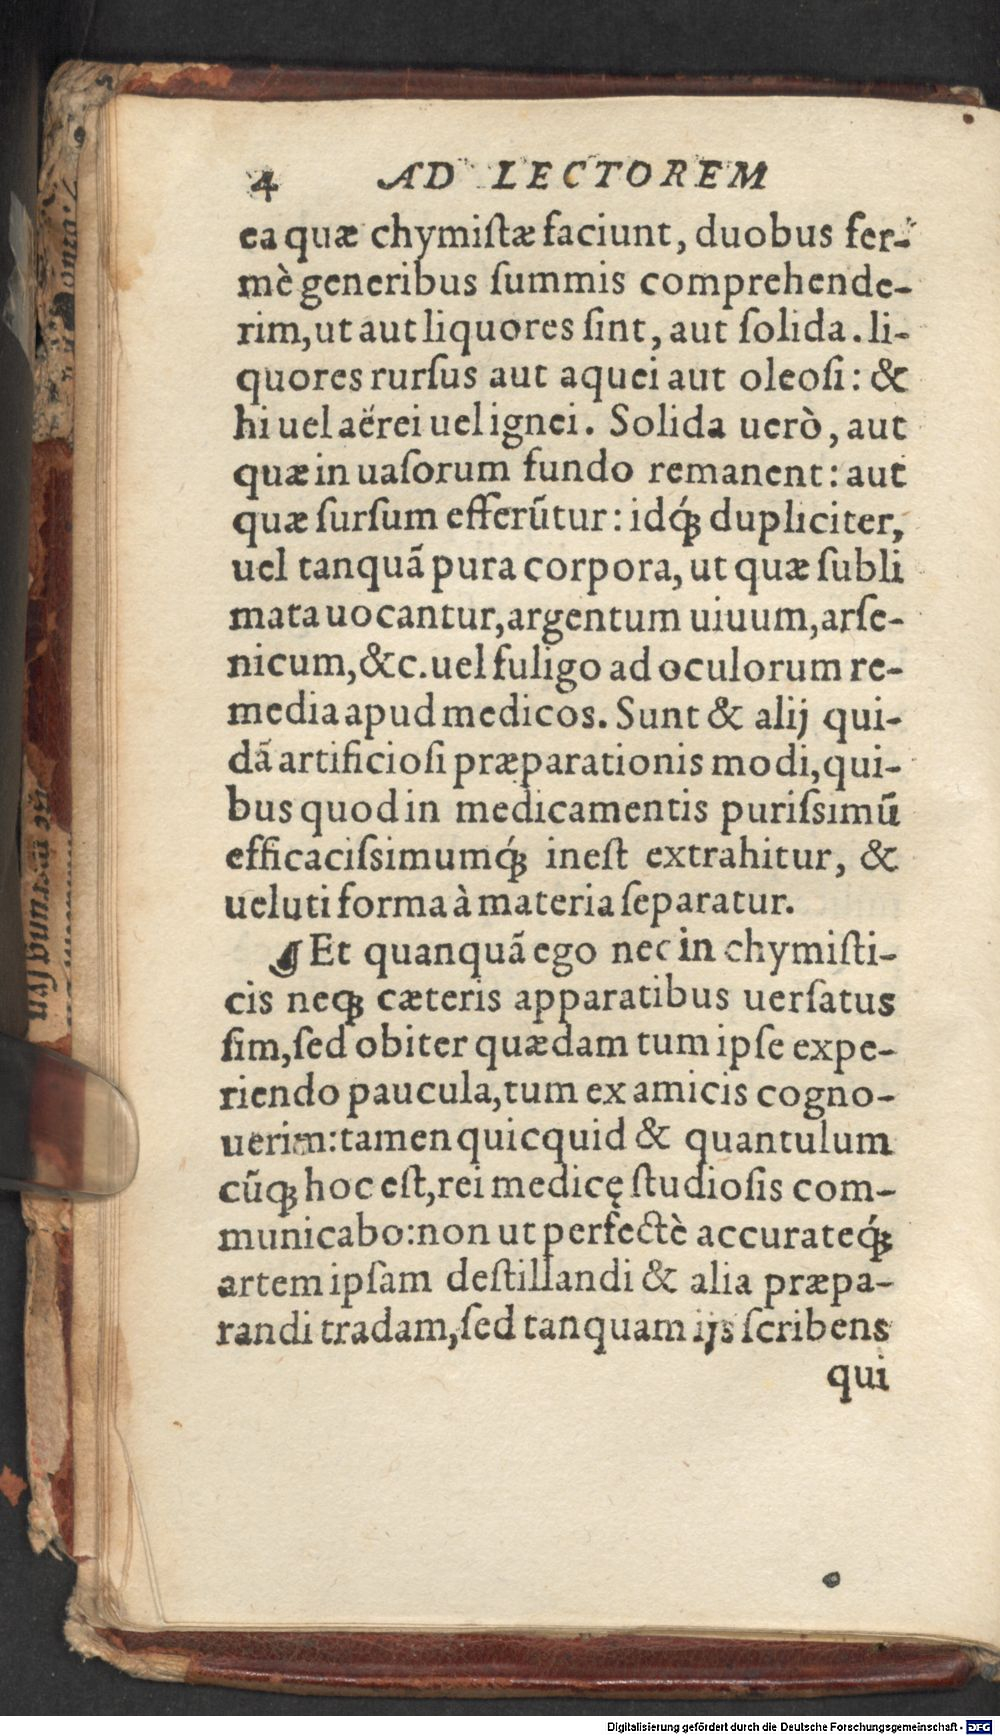 4 AD LECTOREM
ea quæ chymiſtæ faciunt, duobus fer-
mè generibus ſummis comprehende-
rim, ut aut liquores ſint, aut ſolida. li-
quores rurſus aut aquei aut oleoſi: &
hi uel aërei uel ignei. Solida uerò, aut
quæ in uaſorum fundo remanent: aut
quæ ſurſum efferūtur: idq́ꝫ dupliciter,
uel tanquã pura corpora, ut quæ ſubli
mata uocantur, argentum uiuum, arſe-
nicum, &c. uel fuligo ad oculorum re-
media apud medicos. Sunt & alij qui-
dã artificioſi præparationis modi, qui-
bus quod in medicamentis puriſsimū
efficaciſsimumq́ꝫ ineſt extrahitur, &
ueluti forma à materia ſeparatur.
¶ Et quanquã ego nec in chymiſti-
cis neqꝫ cæteris apparatibus uerſatus
ſim, ſed obiter quædam tum ipſe expe-
riendo paucula, tum ex amicis cogno-
uerim: tamen quicquid & quantulum
cūqꝫ hoc eſt, rei medicę ſtudioſis com-
municabo: non ut perfectè accurateq́ꝫ
artem ipſam deſtillandi & alia præpa-
randi tradam, ſed tanquam ijs ſcribens
qui
Digitalisierung gefördert durch die Deutsche Forschungsgemeinschaft - DFG